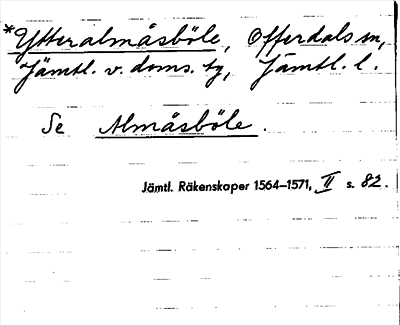 *Ytteralmåsböle, Offerdals sn,
Jämtl. v. doms. tg, Jämtl. l.
Se Almåsböle.
Jämtl. Räkenskaper 1564–1571, II s. 82.